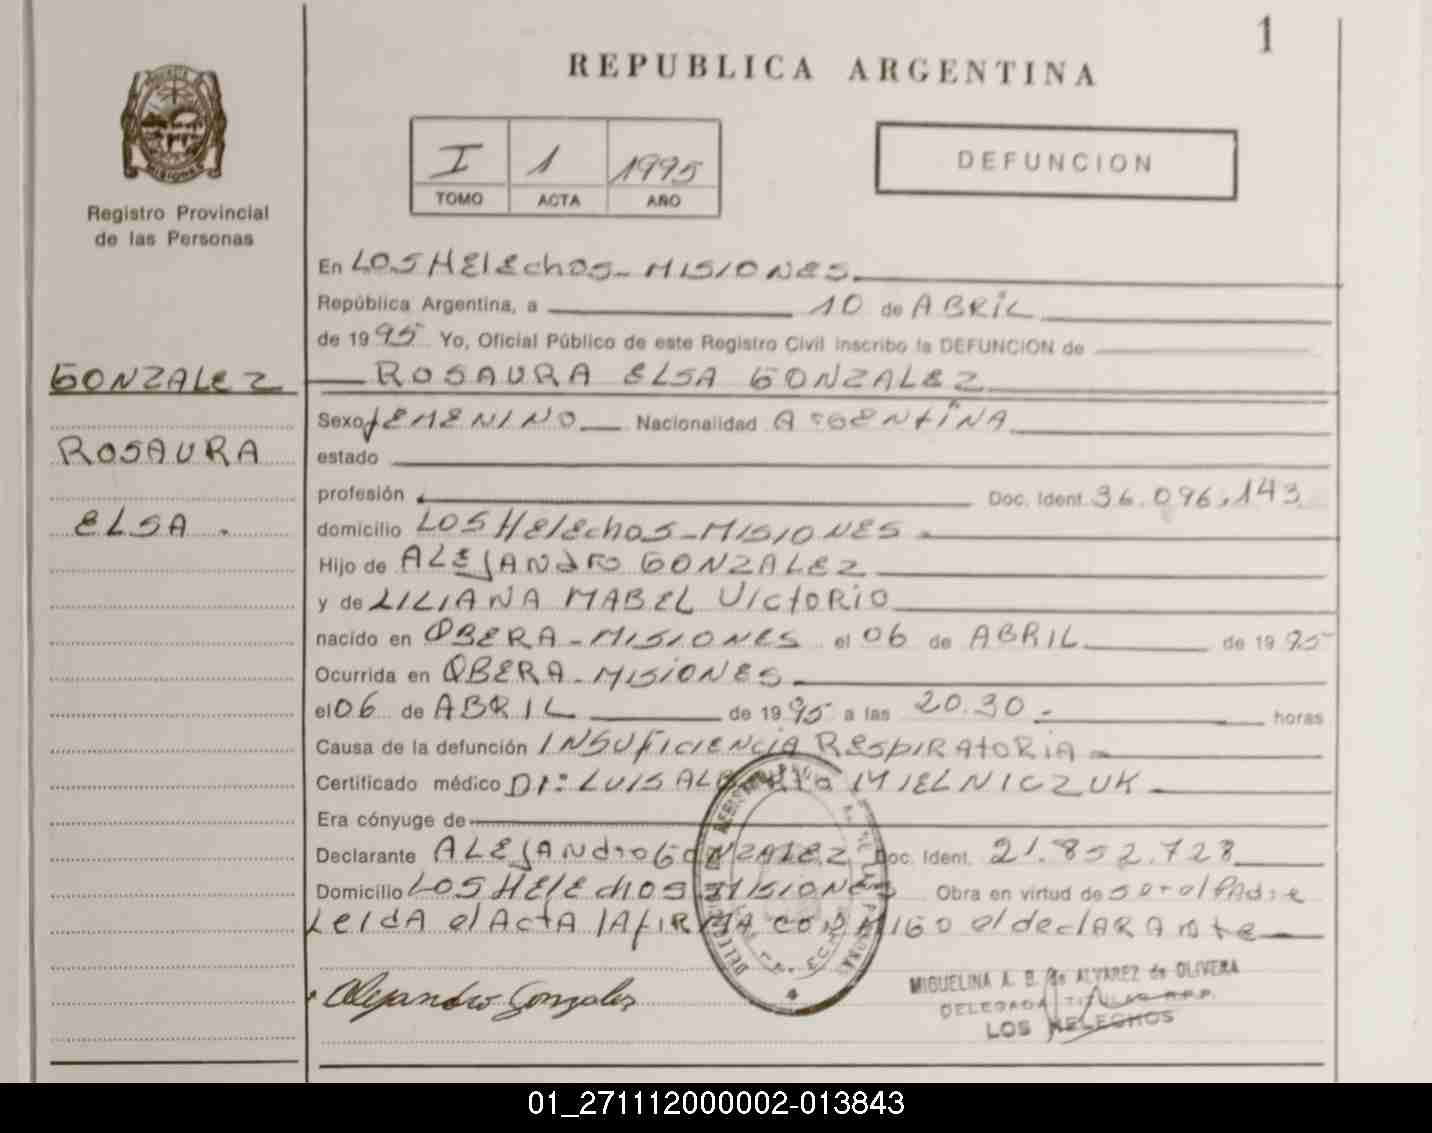 1
REPUBLICA ARGENTINA
I 1 1995
TOMO ACTA AÑO
DEFUNCION
MISIONES
Registro Provincial
de las Personas
GONZALEZ
ROSAURA
ELSA.
En LOS HElEchos - MISIONES
República Argentina, a 10 de ABRiL
de 1995 Yo, Oficial Público de este Registro Civil inscribo la DEFUNCION de
ROSAURA ELSA GONZALEZ
Sexo fEMENINO Nacionalidad ARGENtiNA
estado
profesión Doc. Ident. 36.096.143
domicilio LOS HElEchos - MISIONES
Hijo de ALEJANdRO GONZALEZ
y de LILIANA MABEL VICtORIO
nacido en OBERA - MISIONES el 06 de ABRIL de 1995
Ocurrida en OBERA - MISIONES
el 06 de ABRIL de 1995 a las 20.30 - horas
Causa de la defunción INSUfICIENCIA RESpIRAtORIA
Certificado médico Dr: LUIS ALBERTO MIELNICZUK
Era cónyuge de
Declarante ALEJANdrO GONZALEZ Doc. Ident. 21.852.728
Domicilio LOS HElEchos MISIONES Obra en virtud de SEr el PAdrE
LeidA el ActA lA fIRMA CONMIGO el declARANtE
Alejandro Gonzalez
MIGUELINA A. B. de ALVAREZ de OLIVERA
DELEGADA TITULAR R.P.P.
LOS HELECHOS
01_271112000002-013843